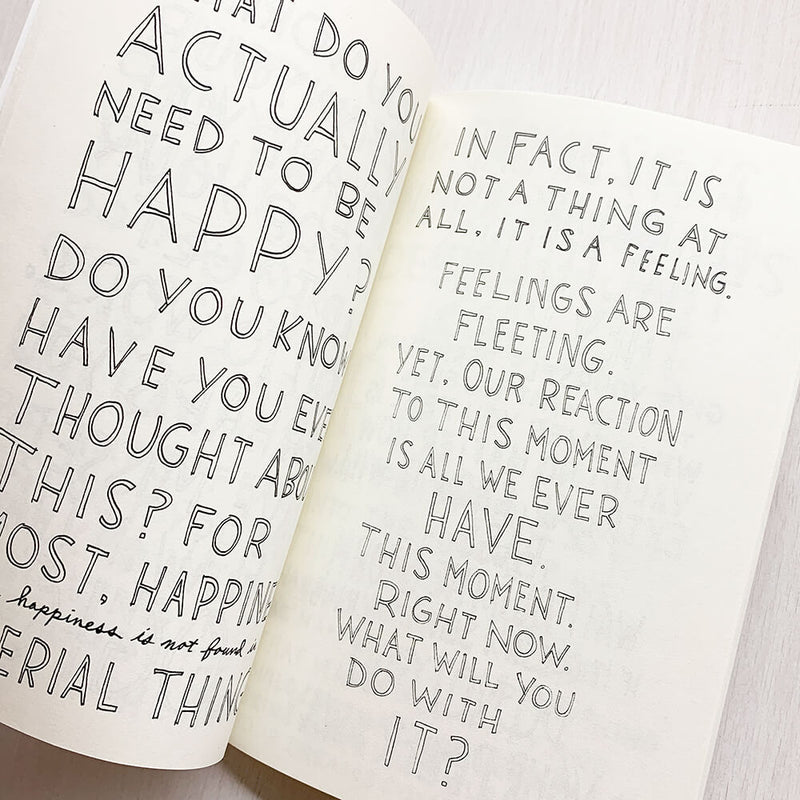 DO YOU
ACTUALLY
NEED TO BE
HAPPY?
DO YOU KNOW
HAVE YOU EVE
THOUGHT ABO
THIS? FOR
MOST, HAPPINE
happiness is not found i
ERIAL THING
IN FACT, IT IS
NOT A THING AT
ALL, IT IS A FEELING.
FEELINGS ARE
FLEETING.
YET, OUR REACTION
TO THIS MOMENT
IS ALL WE EVER
HAVE.
THIS MOMENT.
RIGHT NOW.
WHAT WILL YOU
DO WITH
IT?